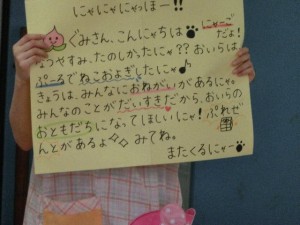 にゃにゃにゃっほー!!
ぐみさん、こんにちは にゃーごだよ!
うやすみ、たのしかったにゃ??おいらは
ぷーるでねこおよぎしたにゃ♪
きょうは、みんなにおねがいがあるにゃ。
みんなのことがだいすきだから、おいらの
おともだちになってほしいにゃ!ぷれぜ
んとがあるよ みてね。
またくるにゃー